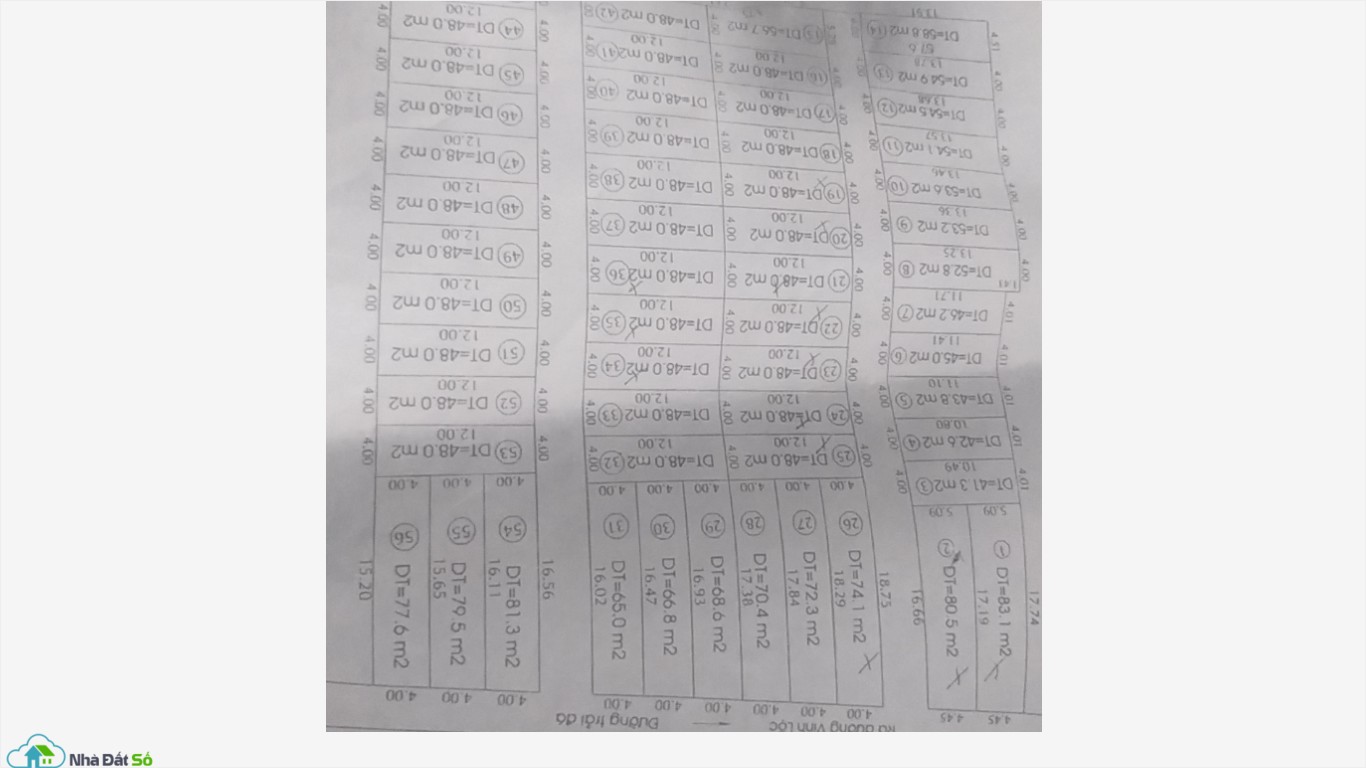 12.00
44 DT=48.0 m2
12.00
45 DT=48.0 m2
12.00
46 DT=48.0 m2
12.00
47 DT=48.0 m2
12.00
48 DT=48.0 m2
12.00
49 DT=48.0 m2
12.00
50 DT=48.0 m2
12.00
51 DT=48.0 m2
12.00
52 DT=48.0 m2
12.00
53 DT=48.0 m2
4.00 4.00 4.00
15.20
56 DT=77.6 m2
15.65
55 DT=79.5 m2
16.11
54 DT=81.3 m2
16.56
4.00 4.00 4.00
DT=48.0 m2 42
12.00
DT=48.0 m2 41
12.00
DT=48.0 m2 40
12.00
DT=48.0 m2 39
12.00
DT=48.0 m2 38
12.00
DT=48.0 m2 37
12.00
DT=48.0 m2 36
12.00
DT=48.0 m2 35
12.00
DT=48.0 m2 34
12.00
DT=48.0 m2 33
12.00
DT=48.0 m2 32
DT=56.7 m2
12.00
16 DT=48.0 m2
12.00
17 DT=48.0 m2
12.00
18 DT=48.0 m2
12.00
19 DT=48.0 m2
12.00
20 DT=48.0 m2
12.00
21 DT=48.0 m2
12.00
22 DT=48.0 m2
12.00
23 DT=48.0 m2
12.00
24 DT=48.0 m2
12.00
25 DT=48.0 m2
4.00 4.00 4.00 4.00 4.00 4.00
31 DT=65.0 m2
16.02
30 DT=66.8 m2
16.47
29 DT=68.6 m2
16.93
28 DT=70.4 m2
17.38
27 DT=72.3 m2
17.84
26 DT=74.1 m2
18.29
18.75
4.00 4.00 4.00 4.00 4.00 4.00
13.91
DT=58.8 m2 14
13.78
DT=54.9 m2 13
13.68
DT=54.5 m2 12
13.57
DT=54.1 m2 11
13.46
DT=53.6 m2 10
13.36
DT=53.2 m2 9
13.25
DT=52.8 m2 8
1.41
11.71
DT=46.2 m2 7
11.41
DT=45.0 m2 6
11.10
DT=43.8 m2 5
10.80
DT=42.6 m2 4
10.49
DT=41.3 m2 3
5.09 5.09
16.66
2 DT=80.5 m2
17.19
1 DT=83.1 m2
17.74
4.45 4.45
Ra đường Vĩnh Lộc
Đường trải đá
Nhà Đất Số